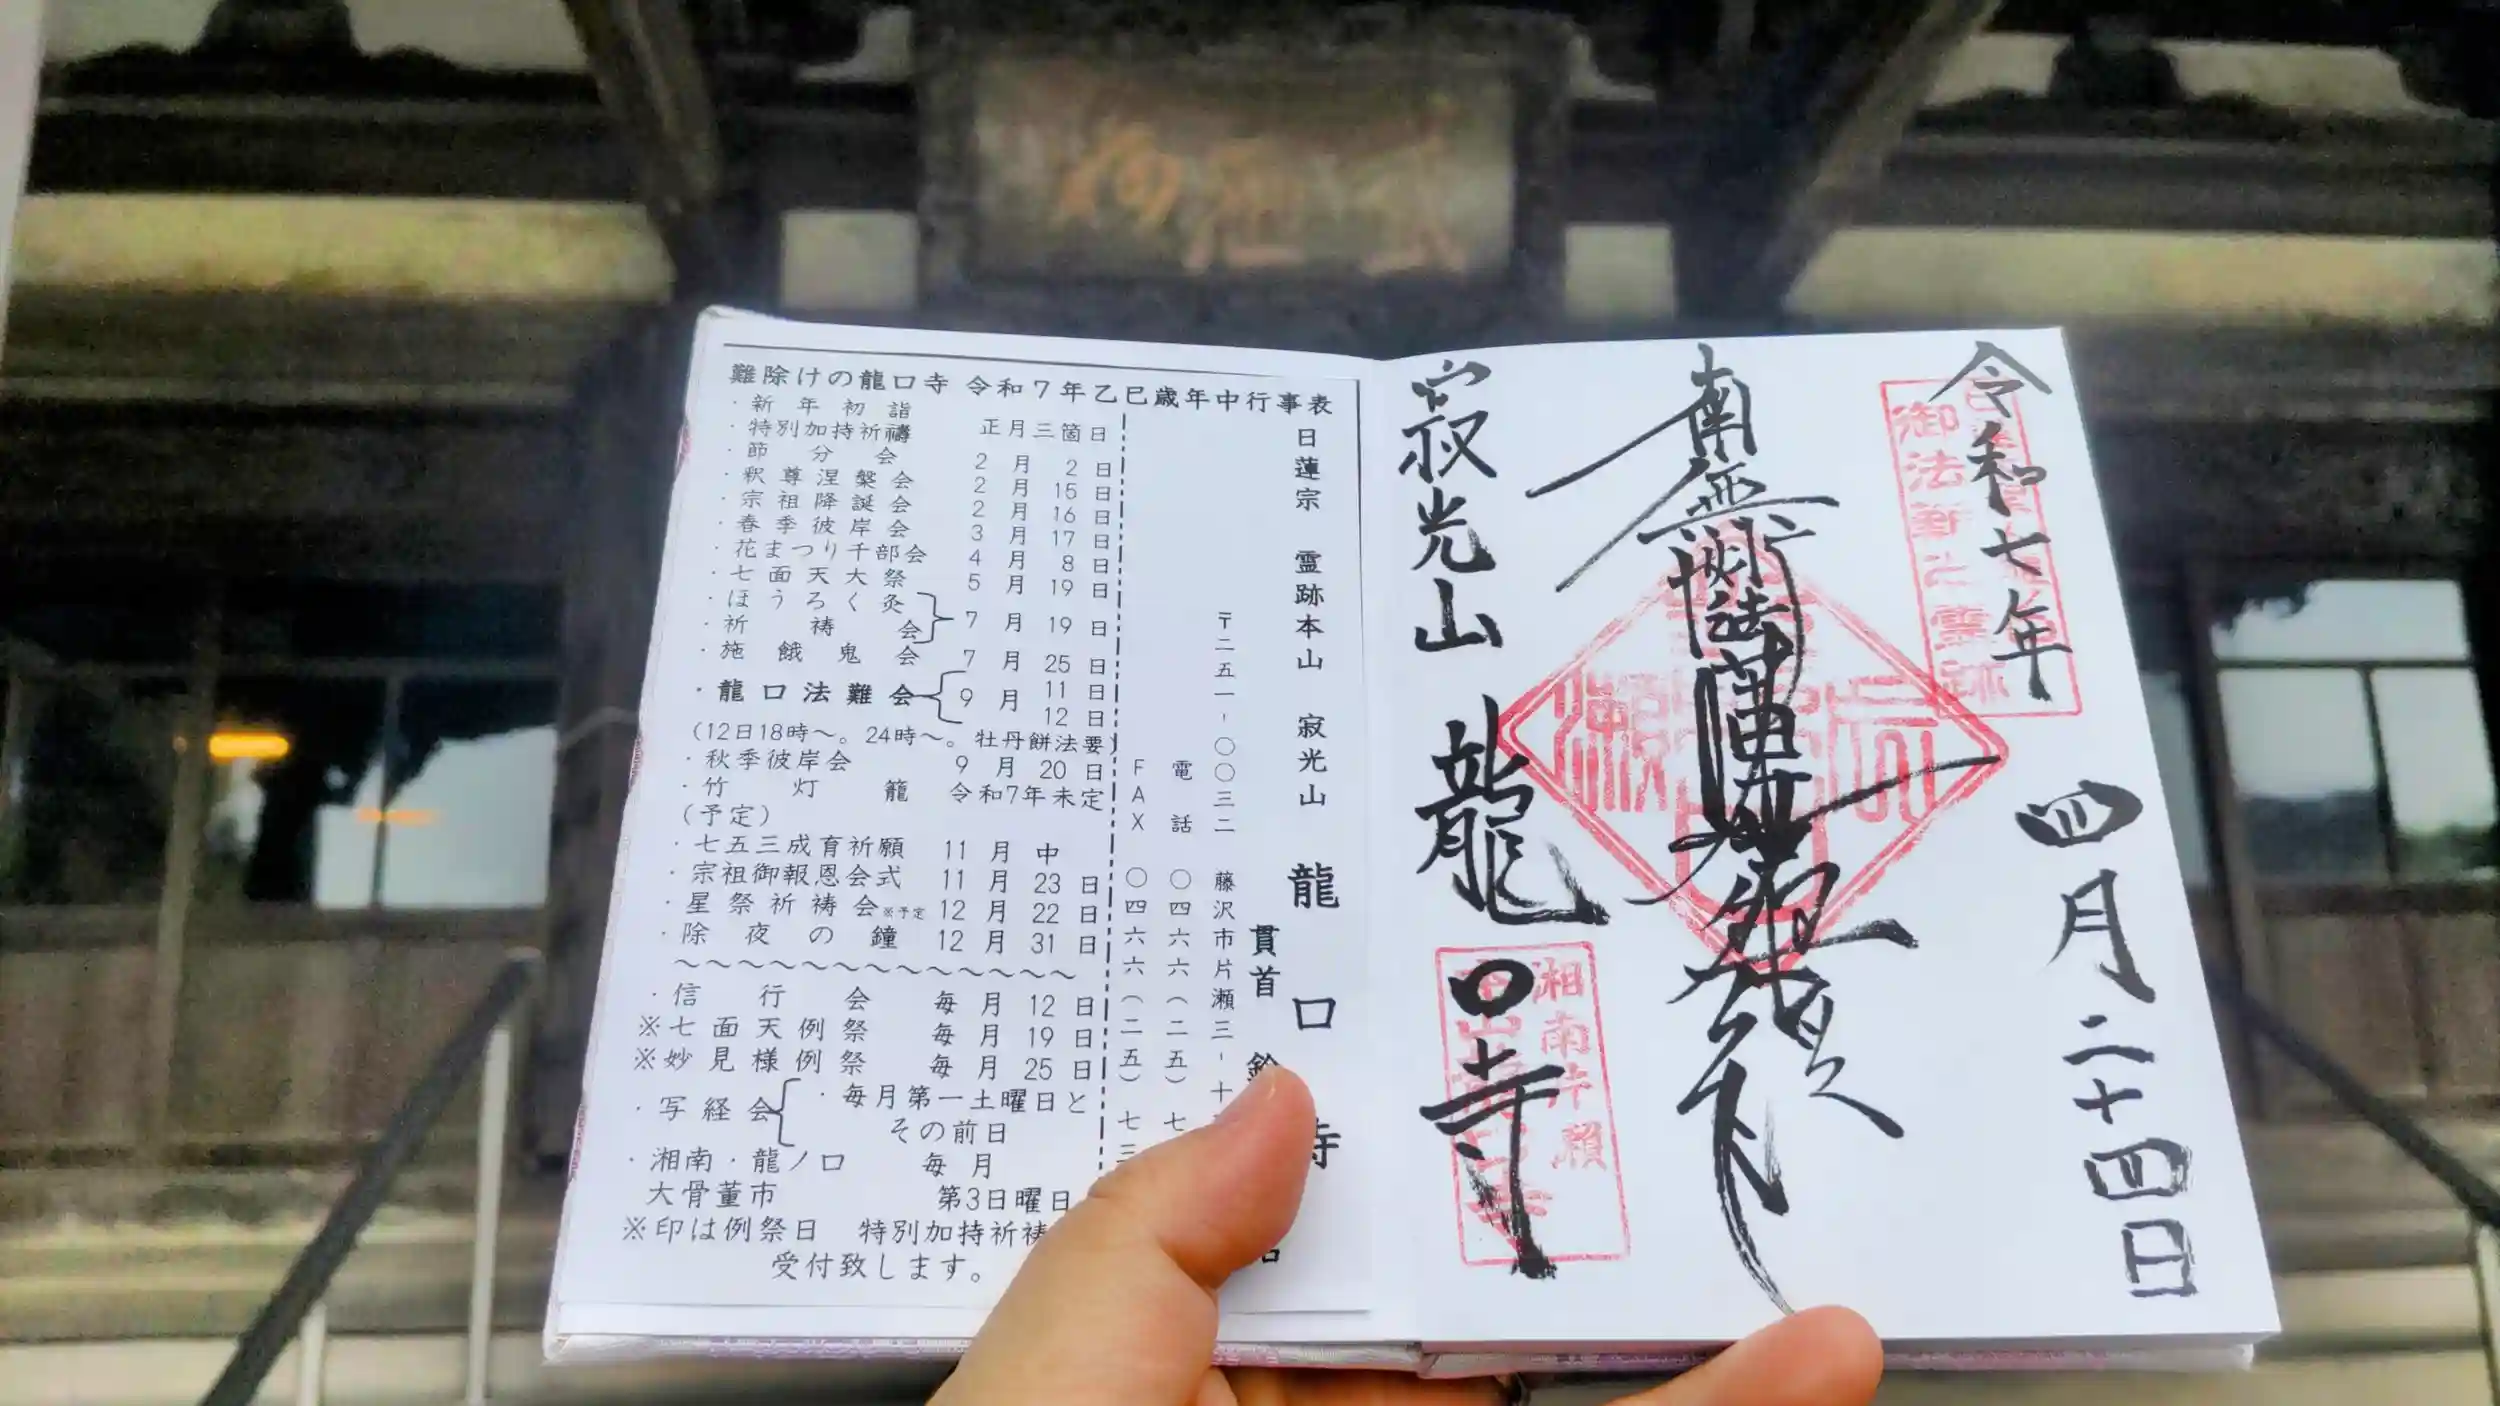 難除けの龍口寺 令和7年乙巳歳年中行事表
・新年初詣
・特別加持祈禱 正月三箇日
・節分会 2月2日
・釈尊涅槃会 2月15日
・宗祖降誕会 2月16日
・春季彼岸会 3月17日
・花まつり千部会 4月8日
・七面天大祭 5月19日
・ほうろく灸
・祈祷会 7月19日
・施餓鬼会 7月25日
・龍口法難会 9月11日 12日
(12日18時～。24時～。牡丹餅法要)
・秋季彼岸会 9月20日
・竹灯籠 令和7年未定
(予定)
・七五三成育祈願 11月中
・宗祖御報恩会式 11月23日
・星祭祈祷会※予定 12月22日
・除夜の鐘 12月31日
～～～～～～～～～～～～～
・信行会 毎月12日
※七面天例祭 毎月19日
※妙見様例祭 毎月25日
・写経会 ・毎月第一土曜日と
その前日
・湘南・龍ノ口 毎月
大骨董市 第3日曜日
※印は例祭日 特別加持祈祷
受付致します。
日蓮宗 霊跡本山 寂光山 龍口寺
貫首
〒二五一-〇〇三二 藤沢市片瀬三-十
電話 〇四六六(二五)七
FAX 〇四六六(二五)七三
令和七年
四月二十四日
御法難之霊跡
南無妙法蓮華経
寂光山
龍口寺
湘南片瀬